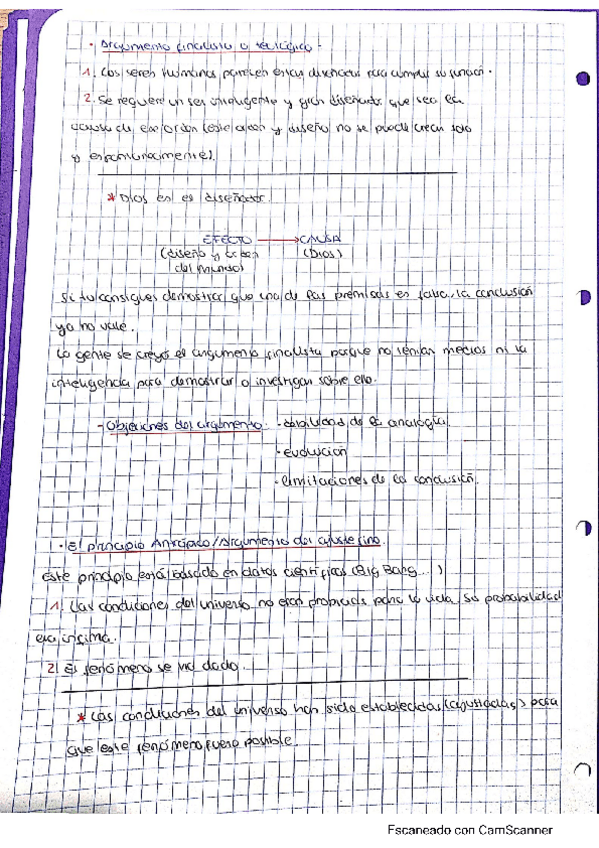 · Argumento finalista o teológico -
1. Los seres humanos parecen estar diseñados para cumplir su función.
2. Se requiere un ser inteligente y gran diseñador que sea la
causa de ese orden (este orden y diseño no se puede crear solo
y espontáneamente).
* Dios en el diseñador.
EFECTO → CAUSA
(diseño y orden (Dios)
del mundo)
Si tu consigues demostrar que una de las premisas es falsa, la conclusión
ya no vale.
La gente se creyó el argumento finalista porque no tenían medios ni la
inteligencia para demostrar o investigar sobre ello.
- Objeciones del argumento: · debilidad de la analogía.
· evolución
· limitaciones de la conclusión.
· El principio Antrópico/Argumento del ajuste fino.
Este principio está basado en datos científicos (Big Bang...)
1. Las condiciones del universo no eran propicias para la vida, su probabilidad
era ínfima.
2. El fenómeno se ha dado.
* Las condiciones del universo han sido establecidas (ajustadas) para
que este fenómeno fuera posible.
Escaneado con CamScanner